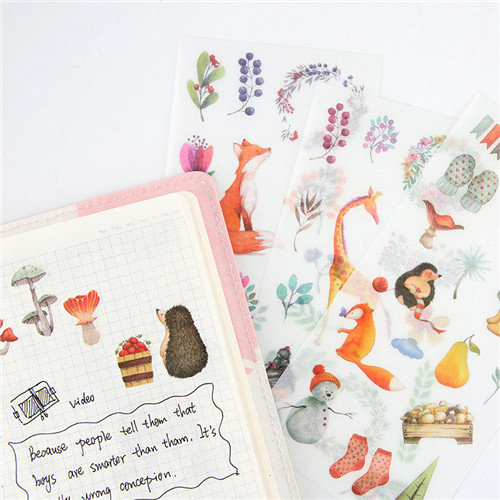 video
Because people tell them that
boys are smarter than tham. It's
wrong concepion.